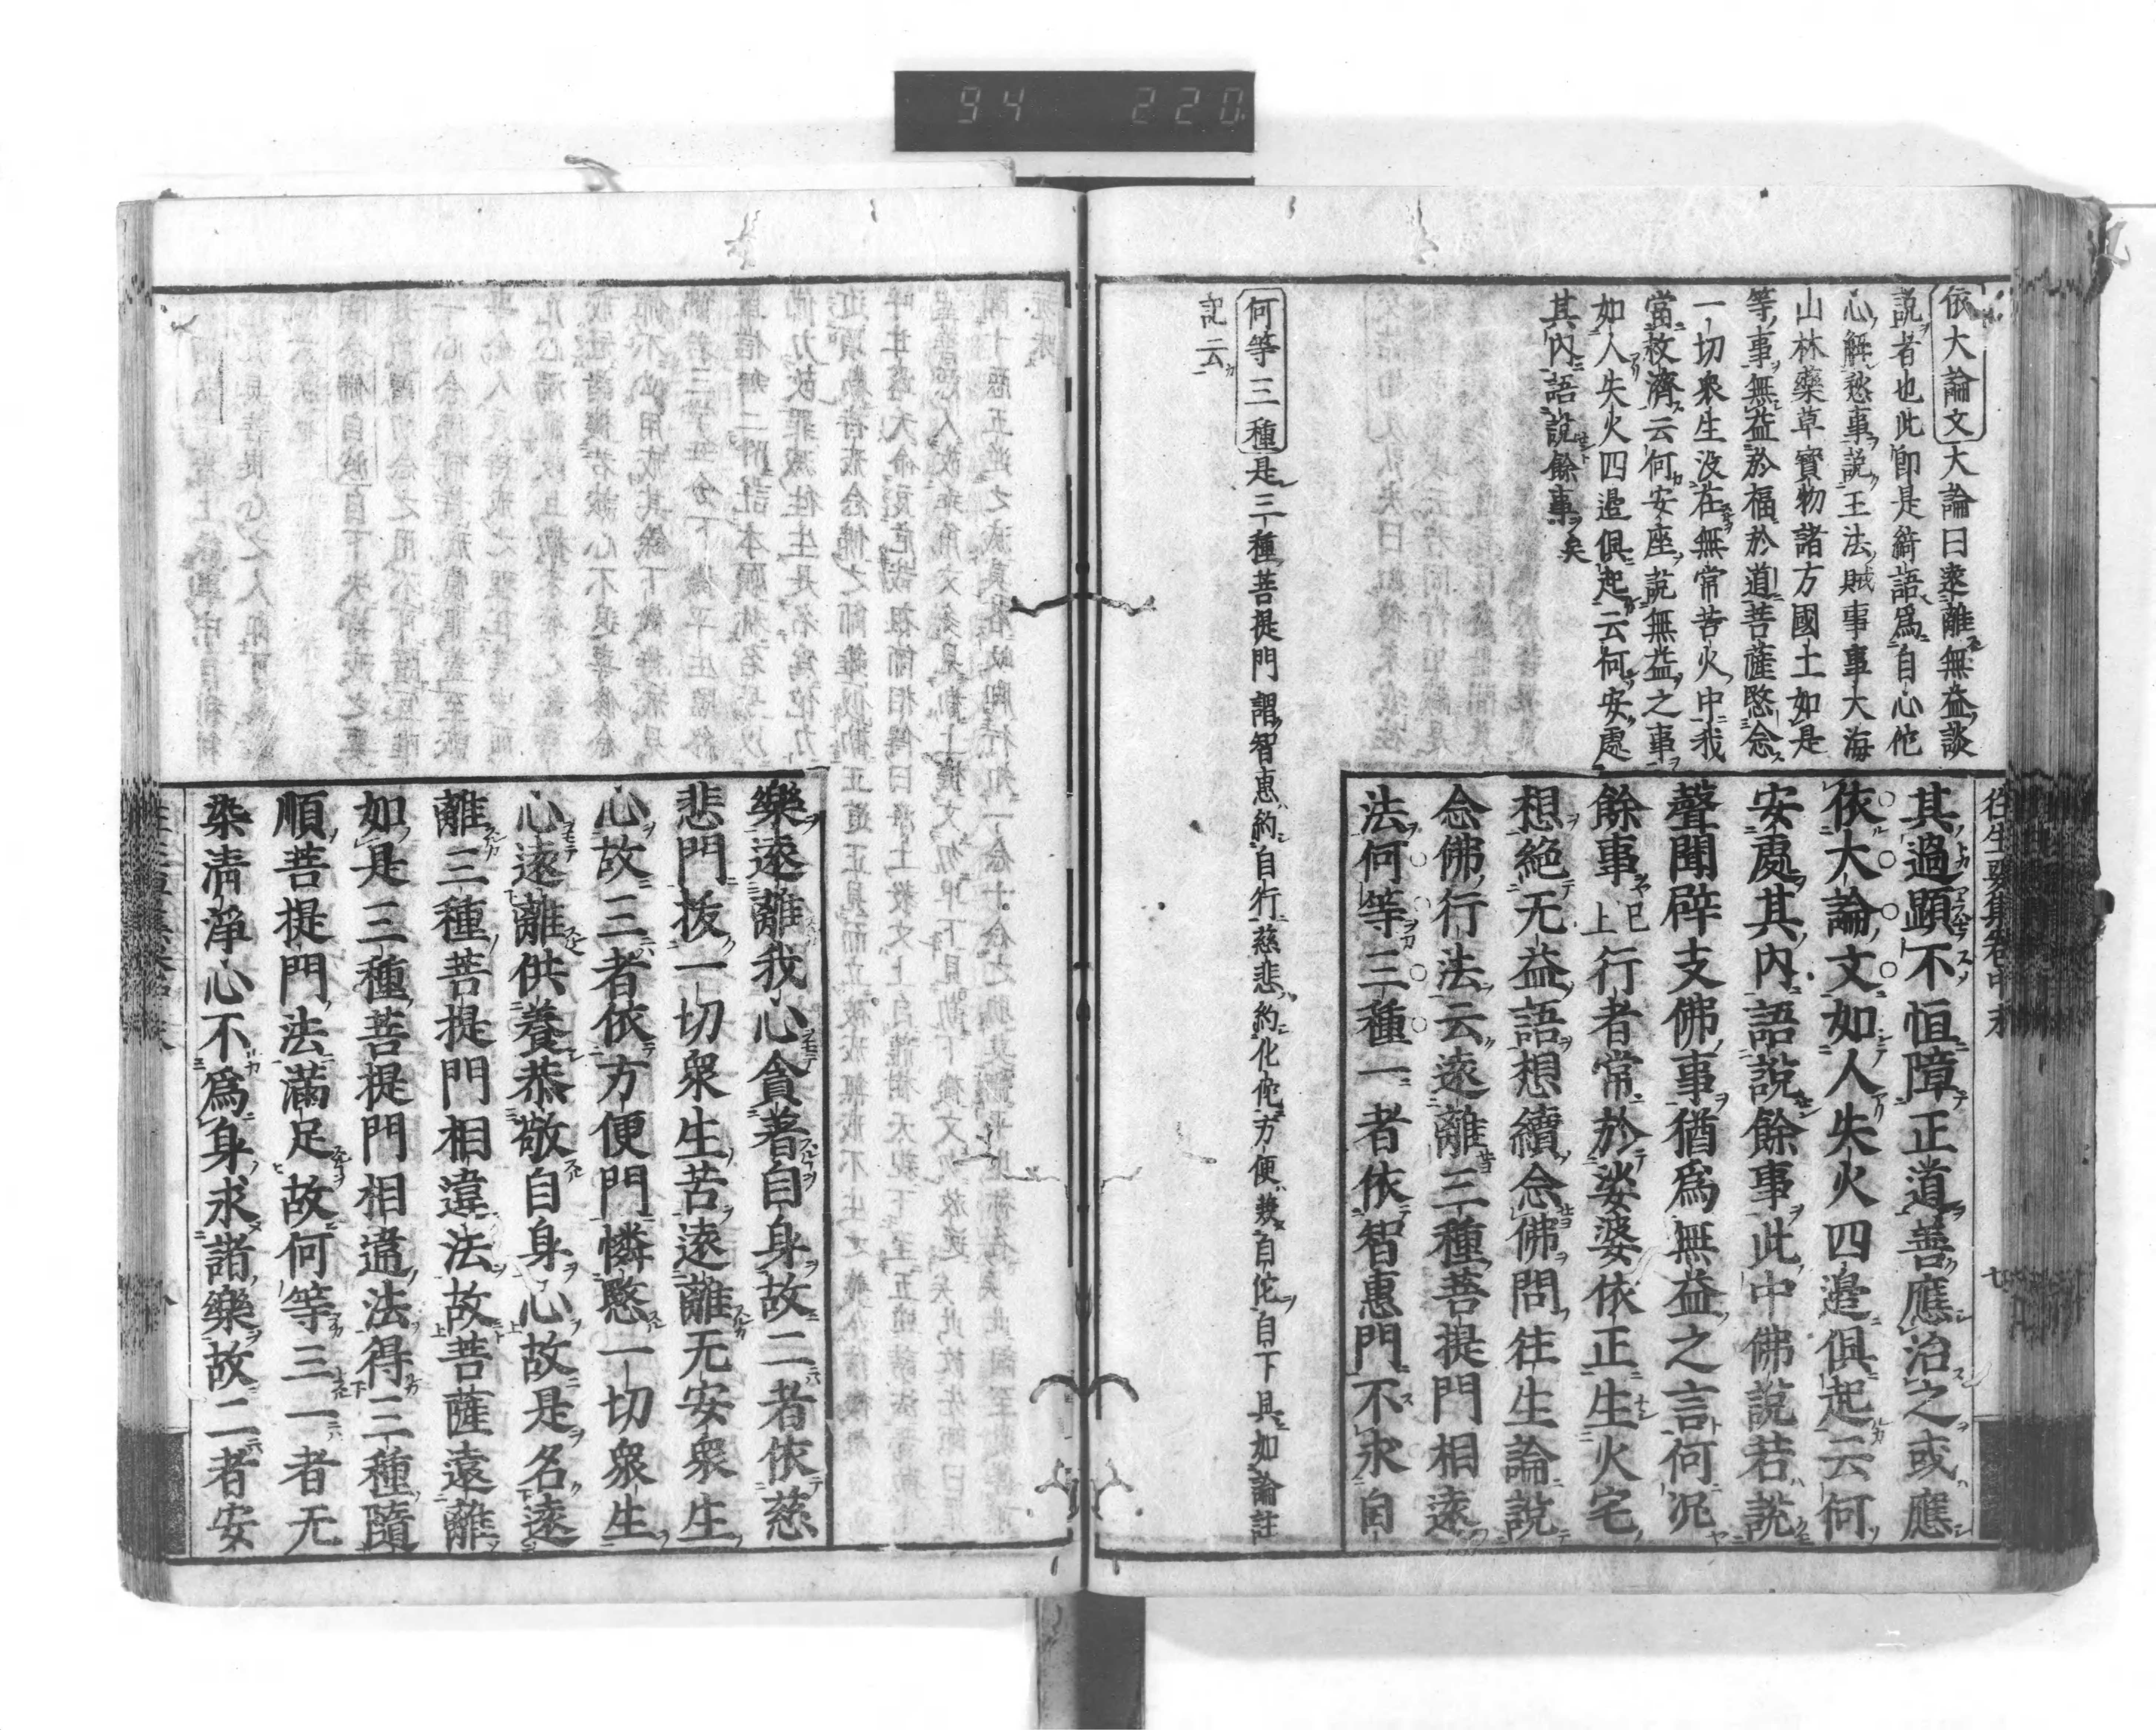 94 220
往生要集卷中末
七
依大論文大論曰遠離無益談
說者也此即是綺語爲自心他
心解愁事說王法賊事事大海
山林藥草寶物諸方國土如是
等事無益於福於道菩薩愍念
一切衆生没在無常苦火中我
當救濟云何安座說無益之事
如人失火四邉俱起云何安處
其内語說餘事矣
其過顕不恒障正道善應治之或應
依大論文如人失火四邉俱起云何
安處其内語說餘事此中佛說若說
聲聞辟支佛事猶爲無益之言何况
餘事已上行者常於娑婆依正生火宅
想絶无益語想續念佛問徃生論說
念佛行法云遠離三種菩提門相遠
法何等三種一者依智惠門不求自
何等三種是三種菩提門謂智惠約自行慈悲約化他方便兼自佗自下具如論註
記云
樂遠離我心貪著自身故二者依慈
悲門拔一切衆生苦遠離无安衆生
心故三者依方便門憐愍一切衆生
心遠離供養恭敬自身心故是名遠
離三種菩提門相違法故菩薩遠離
如是三種菩提門相違法得三種隨
順菩提門法滿足故何等三一者无
染清淨心不爲身求諸樂故二者安